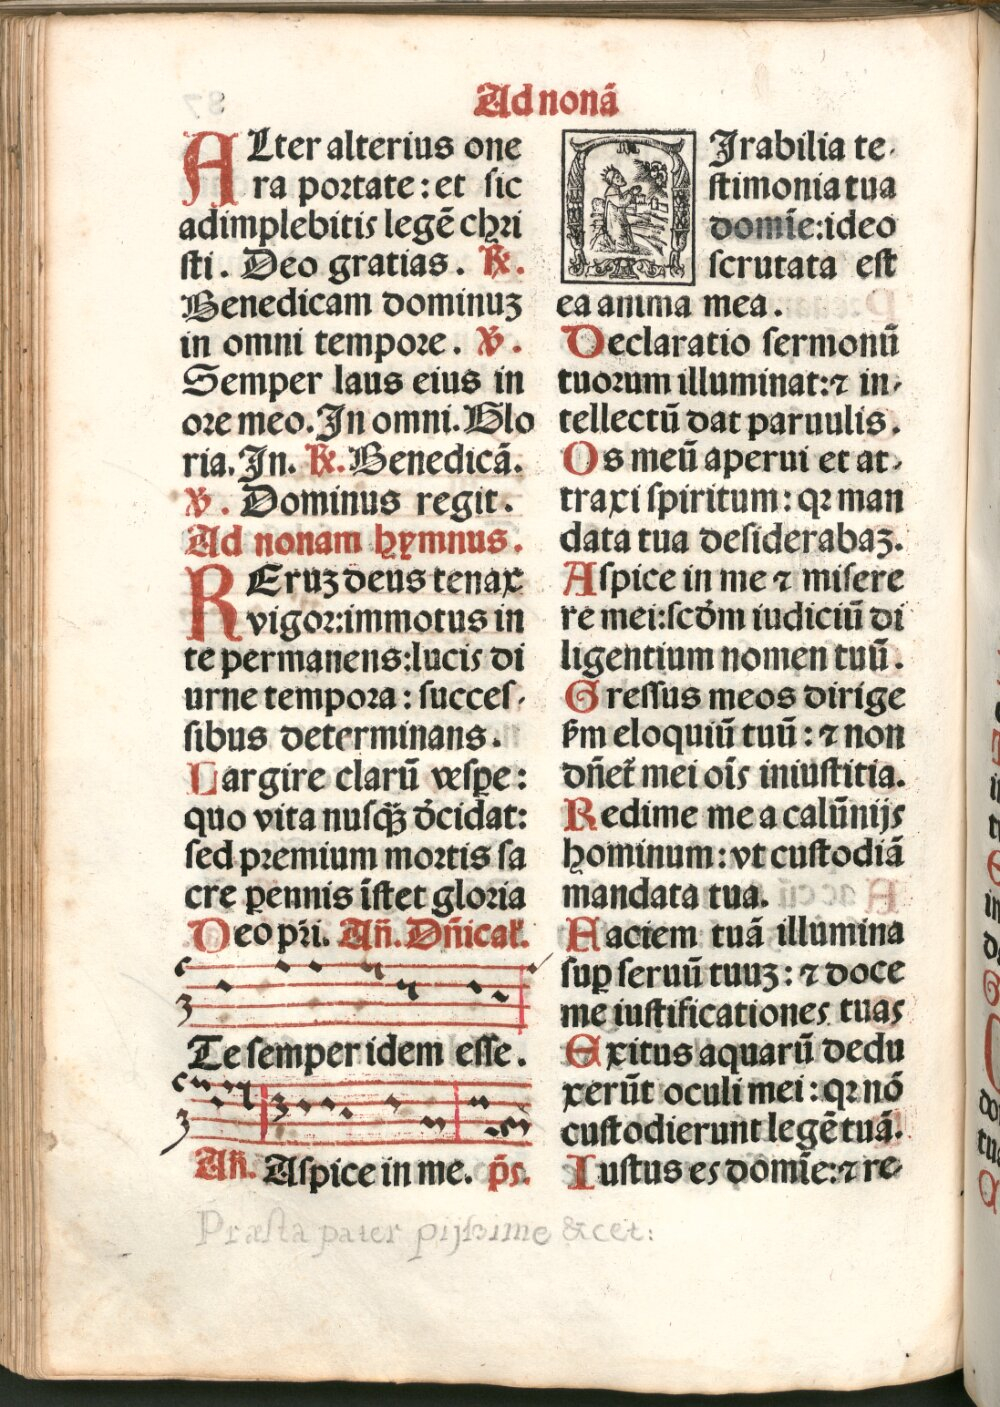 Ad nonā
ALter alterius one
ra portate: et sic
adimplebitis legē chri
sti. Deo gratias. ℟.
Benedicam dominuꝫ
in omni tempore. ℣.
Semper laus eius in
ore meo. In omni. Glo
ria. In. ℟. Benedicā.
℣. Dominus regit.
Ad nonam hymnus.
REruꝫ deus tenax
vigor: immotus in
te permanens: lucis di
urne tempora: succes-
sibus determinans.
Largire clarū vespe:
quo vita nusq̄ꝫ dc̄idat:
sed premium mortis sa
cre ꝑennis īstet gloria
Deo pr̄i. Añ. Dñical̄.
Te semper idem esse.
Añ. Aspice in me. p̄s.
Præsta pater pijssime &cet:
MIrabilia te-
stimonia tua
domīe: ideo
scrutata est
ea amma mea.
Declaratio sermonū
tuorum illuminat: ⁊ in-
tellectū dat paruulis.
Os meū aperui et at-
traxi spiritum: qꝛ man
data tua desiderabaꝫ.
Aspice in me ⁊ misere
re mei: scd̄m iudiciū di
ligentium nomen tuū.
Gressus meos dirige
ẜm eloquiū tuū: ⁊ non
dn̄et̄ mei oīs iniustitia.
Redime me a calūnijs
hominum: vt custodiā
mandata tua.
Faciem tuā illumina
suꝑ seruū tuuꝫ: ⁊ doce
me iustificationes tuas
Exitus aquarū dedu
xerūt oculi mei: qꝛ nō
custodierunt legē tuā.
Iustus es domīe: ⁊ re-